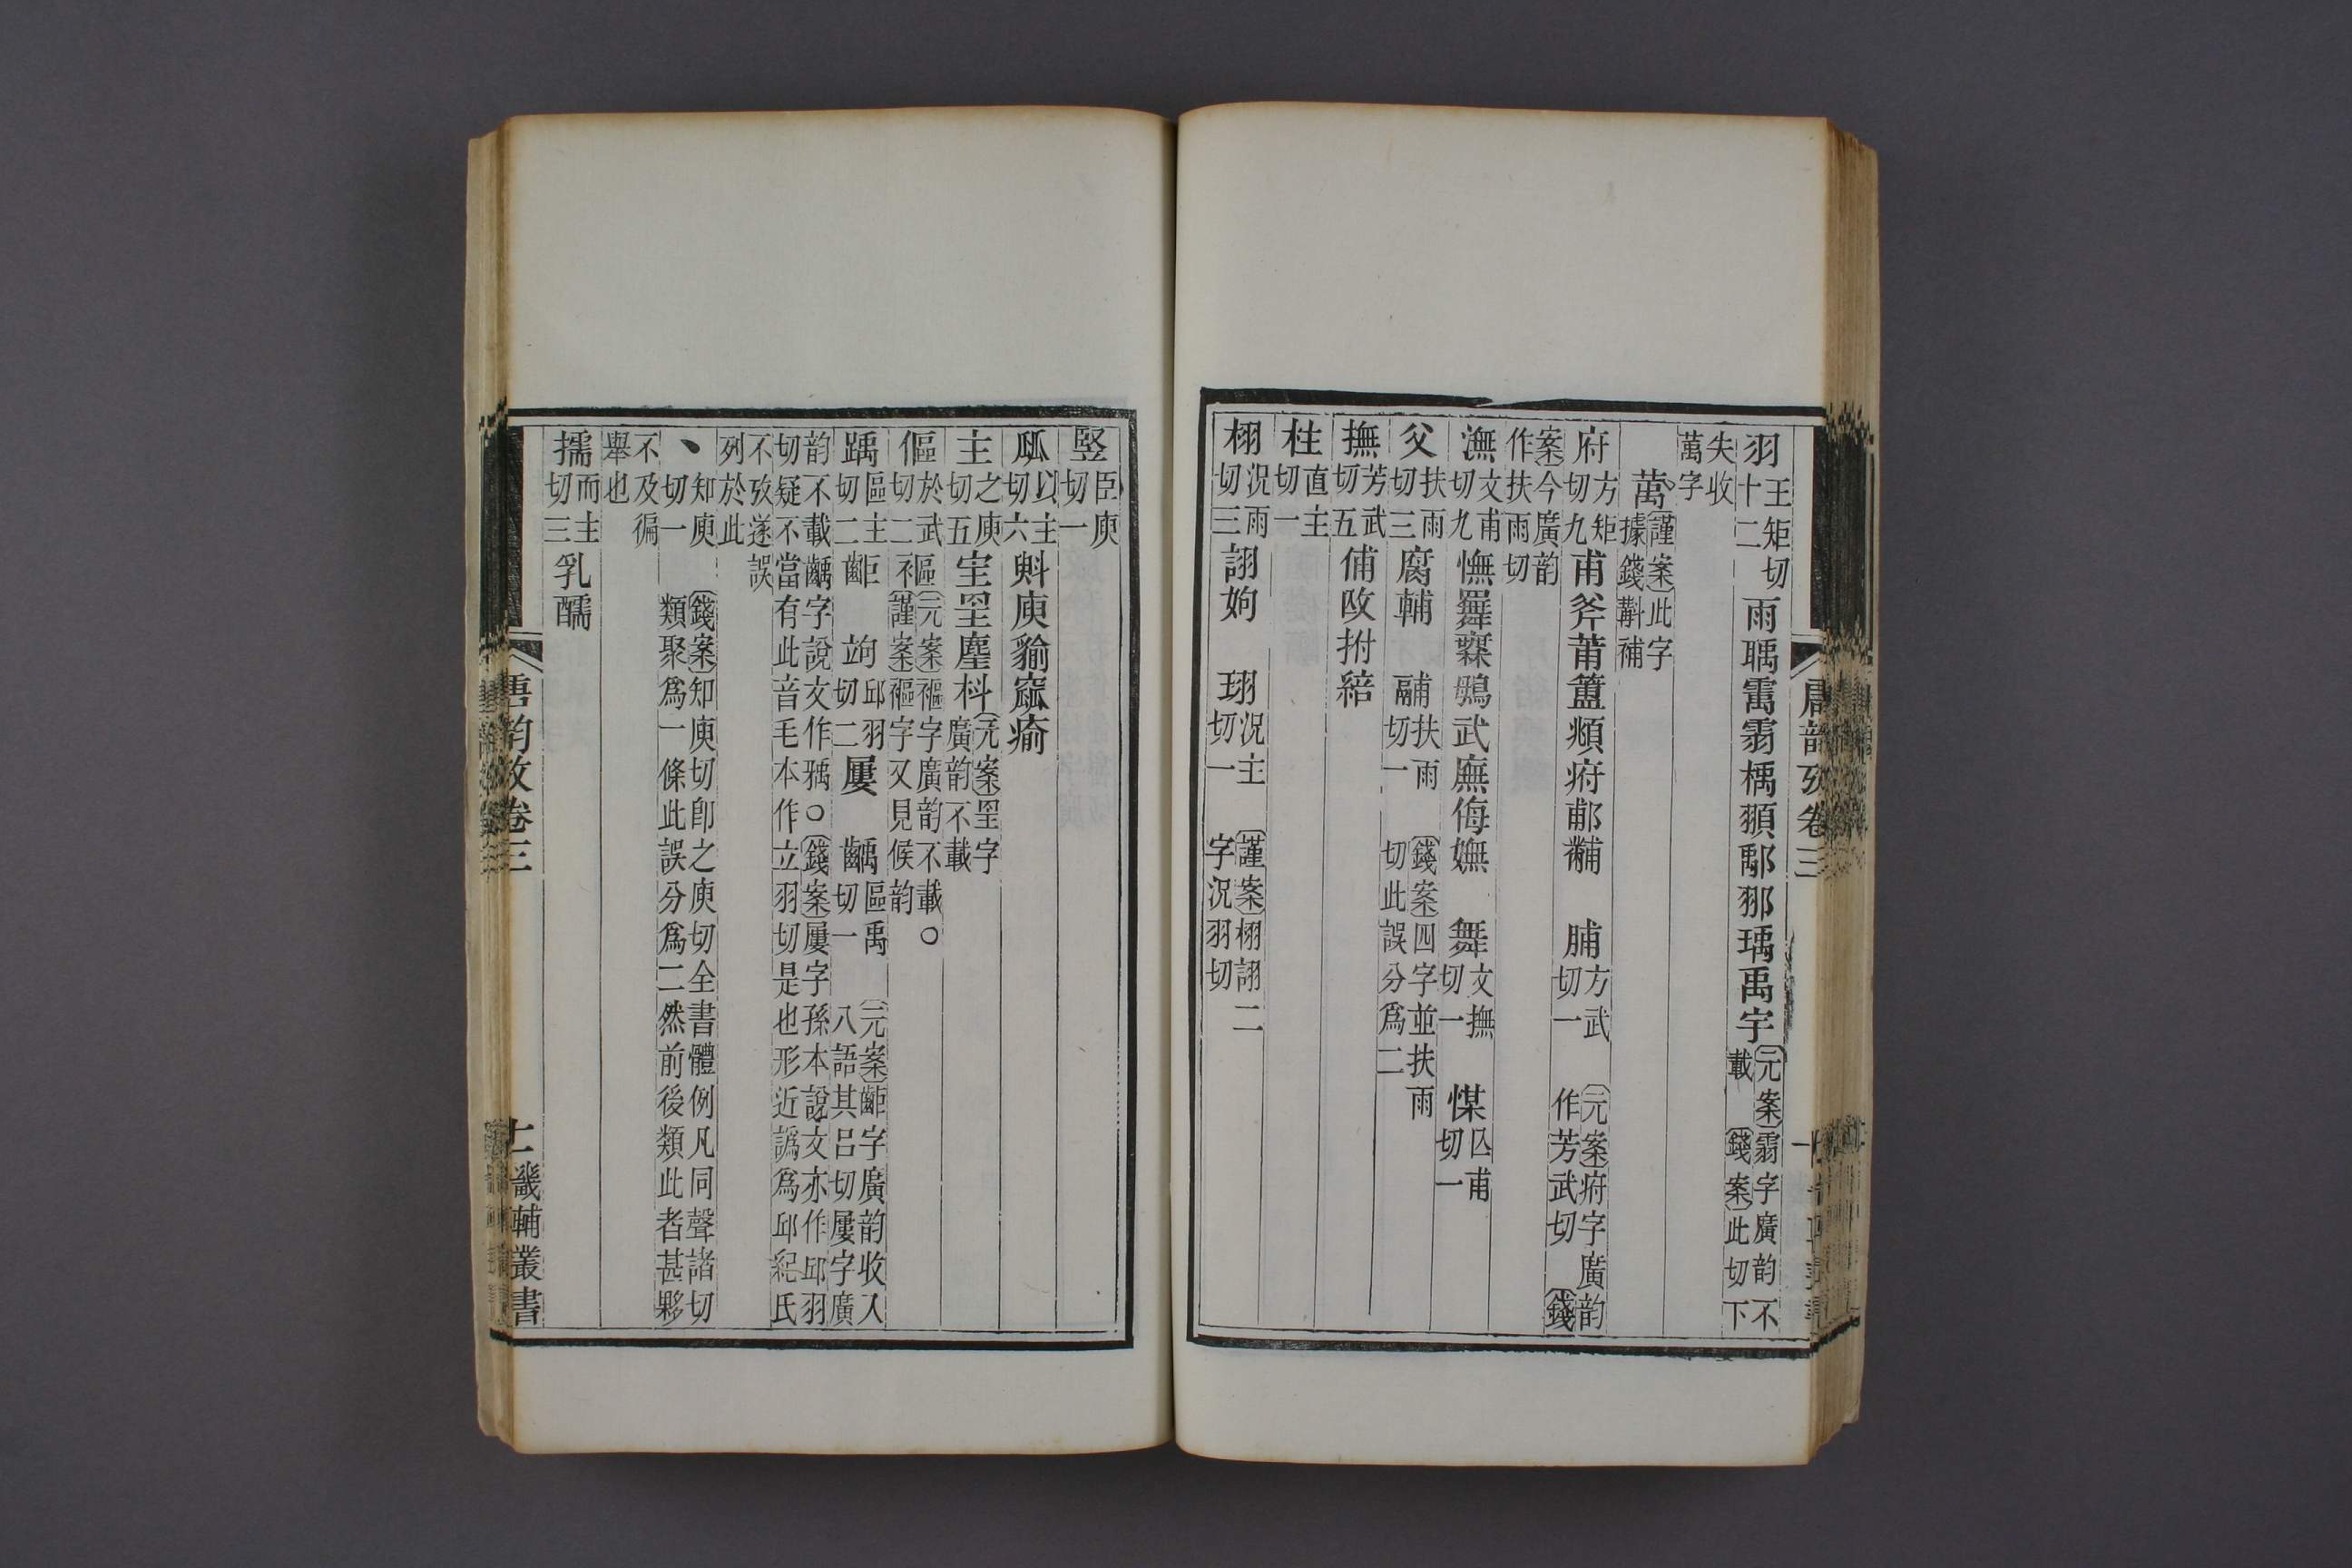 羽王矩切十二雨瑀䨞翯楀頨鄅䢴瑀禹宇元案翯字廣韵不載錢案此切下
失收萬字
萭謹案此字據錢斠補
府方矩切九甫斧莆簠頫府郙黼 脯方武切一 元案府字廣韵作芳武切 錢
案今廣韵作扶雨切
潕文甫切九憮舞䍢鵡武廡侮嫵 舞文撫切一 㷬匹甫切一
父扶雨切三腐輔 䩉扶雨切一 錢案四字並扶雨切此誤分爲二
撫芳武切五俌改拊䋨
柱直主切一
栩況雨切三詡姁 珝況主切一 謹案栩詡二字況羽切
唐韵攷卷三
豎臣庾切一
㼌以主切六斞庾貐窳瘉
主之庾切五宔罜麈枓元案罜字廣韵不載
傴於武切二䙔元案䙔字廣韵不載○謹案䙔字又見候韵
踽區主切二齟 竘邱羽切二屨 齲區禹切一 元案齟字廣韵收入八語其呂切屨字廣
韵不載齲字說文作㺒○錢案屨字孫本說文亦作邱羽切疑不當有此音毛本作立羽切是也形近譌爲邱紀氏
不攷遂誤列於此
丶知庾切一 錢案知庾切卽之庾切全書體例凡同聲諸切類聚爲一條此誤分爲二然前後類此者甚夥
不及徧舉也
擩而主切三乳醹
唐韵攷卷三
十一
畿輔叢書